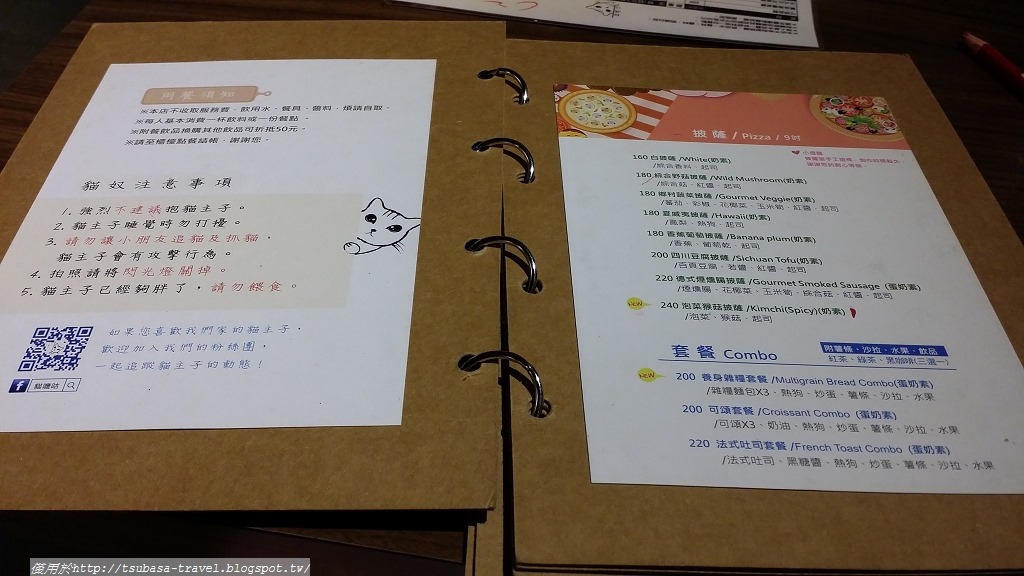 用餐須知
※本店不收取服務費，飲用水、餐具、醬料，煩請自取。
※每人基本消費一杯飲料或一份餐點。
※附餐飲品換購其他飲品可折抵50元。
※請至櫃檯點餐結帳，謝謝您。
貓奴注意事項
1. 強烈不建議抱貓主子。
2. 貓主子睡覺時勿打擾。
3. 請勿讓小朋友追貓及抓貓，
貓主子會有攻擊行為。
4. 拍照請將閃光燈關掉。
5. 貓主子已經夠胖了，請勿餵食。
如果您喜歡我們家的貓主子，
歡迎加入我們的粉絲團，
一起追蹤貓主子的動態！
f
披薩 / Pizza / 9吋
小提醒
160 白披薩 /White(奶素)
/綜合香料、起司
180 綜合野菇披薩 /Wild Mushroom(奶素)
/綜合菇、紅醬、起司
180 鄉村蔬菜披薩 /Gourmet Veggie(奶素)
/蕃茄、彩椒、花椰菜、玉米筍、紅醬、起司
180 夏威夷披薩 /Hawaii(奶素)
/鳳梨、熱狗、起司
180 香蕉葡萄披薩 /Banana plum(奶素)
/香蕉、葡萄乾、起司
200 四川豆腐披薩 /Sichuan Tofu(奶素)
/百頁豆腐、紅醬、起司
220 德式煙燻腸披薩 /Gourmet Smoked Sausage (蛋奶素)
/煙燻腸、花椰菜、玉米筍、綜合菇、紅醬、起司
NEW
240 泡菜猴菇披薩 /Kimchi(Spicy)(奶素)
/泡菜、猴菇、起司
套餐 Combo
附薯條、沙拉、水果、飲品
紅茶、綠茶、黑咖啡(三選一)
NEW
200 養身雜糧套餐 /Multigrain Bread Combo(蛋奶素)
/雜糧麵包X3、熱狗、炒蛋、薯條、沙拉、水果
200 可頌套餐 /Croissant Combo (蛋奶素)
/可頌X3、奶油、熱狗、炒蛋、薯條、沙拉、水果
220 法式吐司套餐 /French Toast Combo (蛋奶素)
/法式吐司、黑糖醬、熱狗、炒蛋、薯條、沙拉、水果
僅用於http://tsubasa-travel.blogspot.tw/